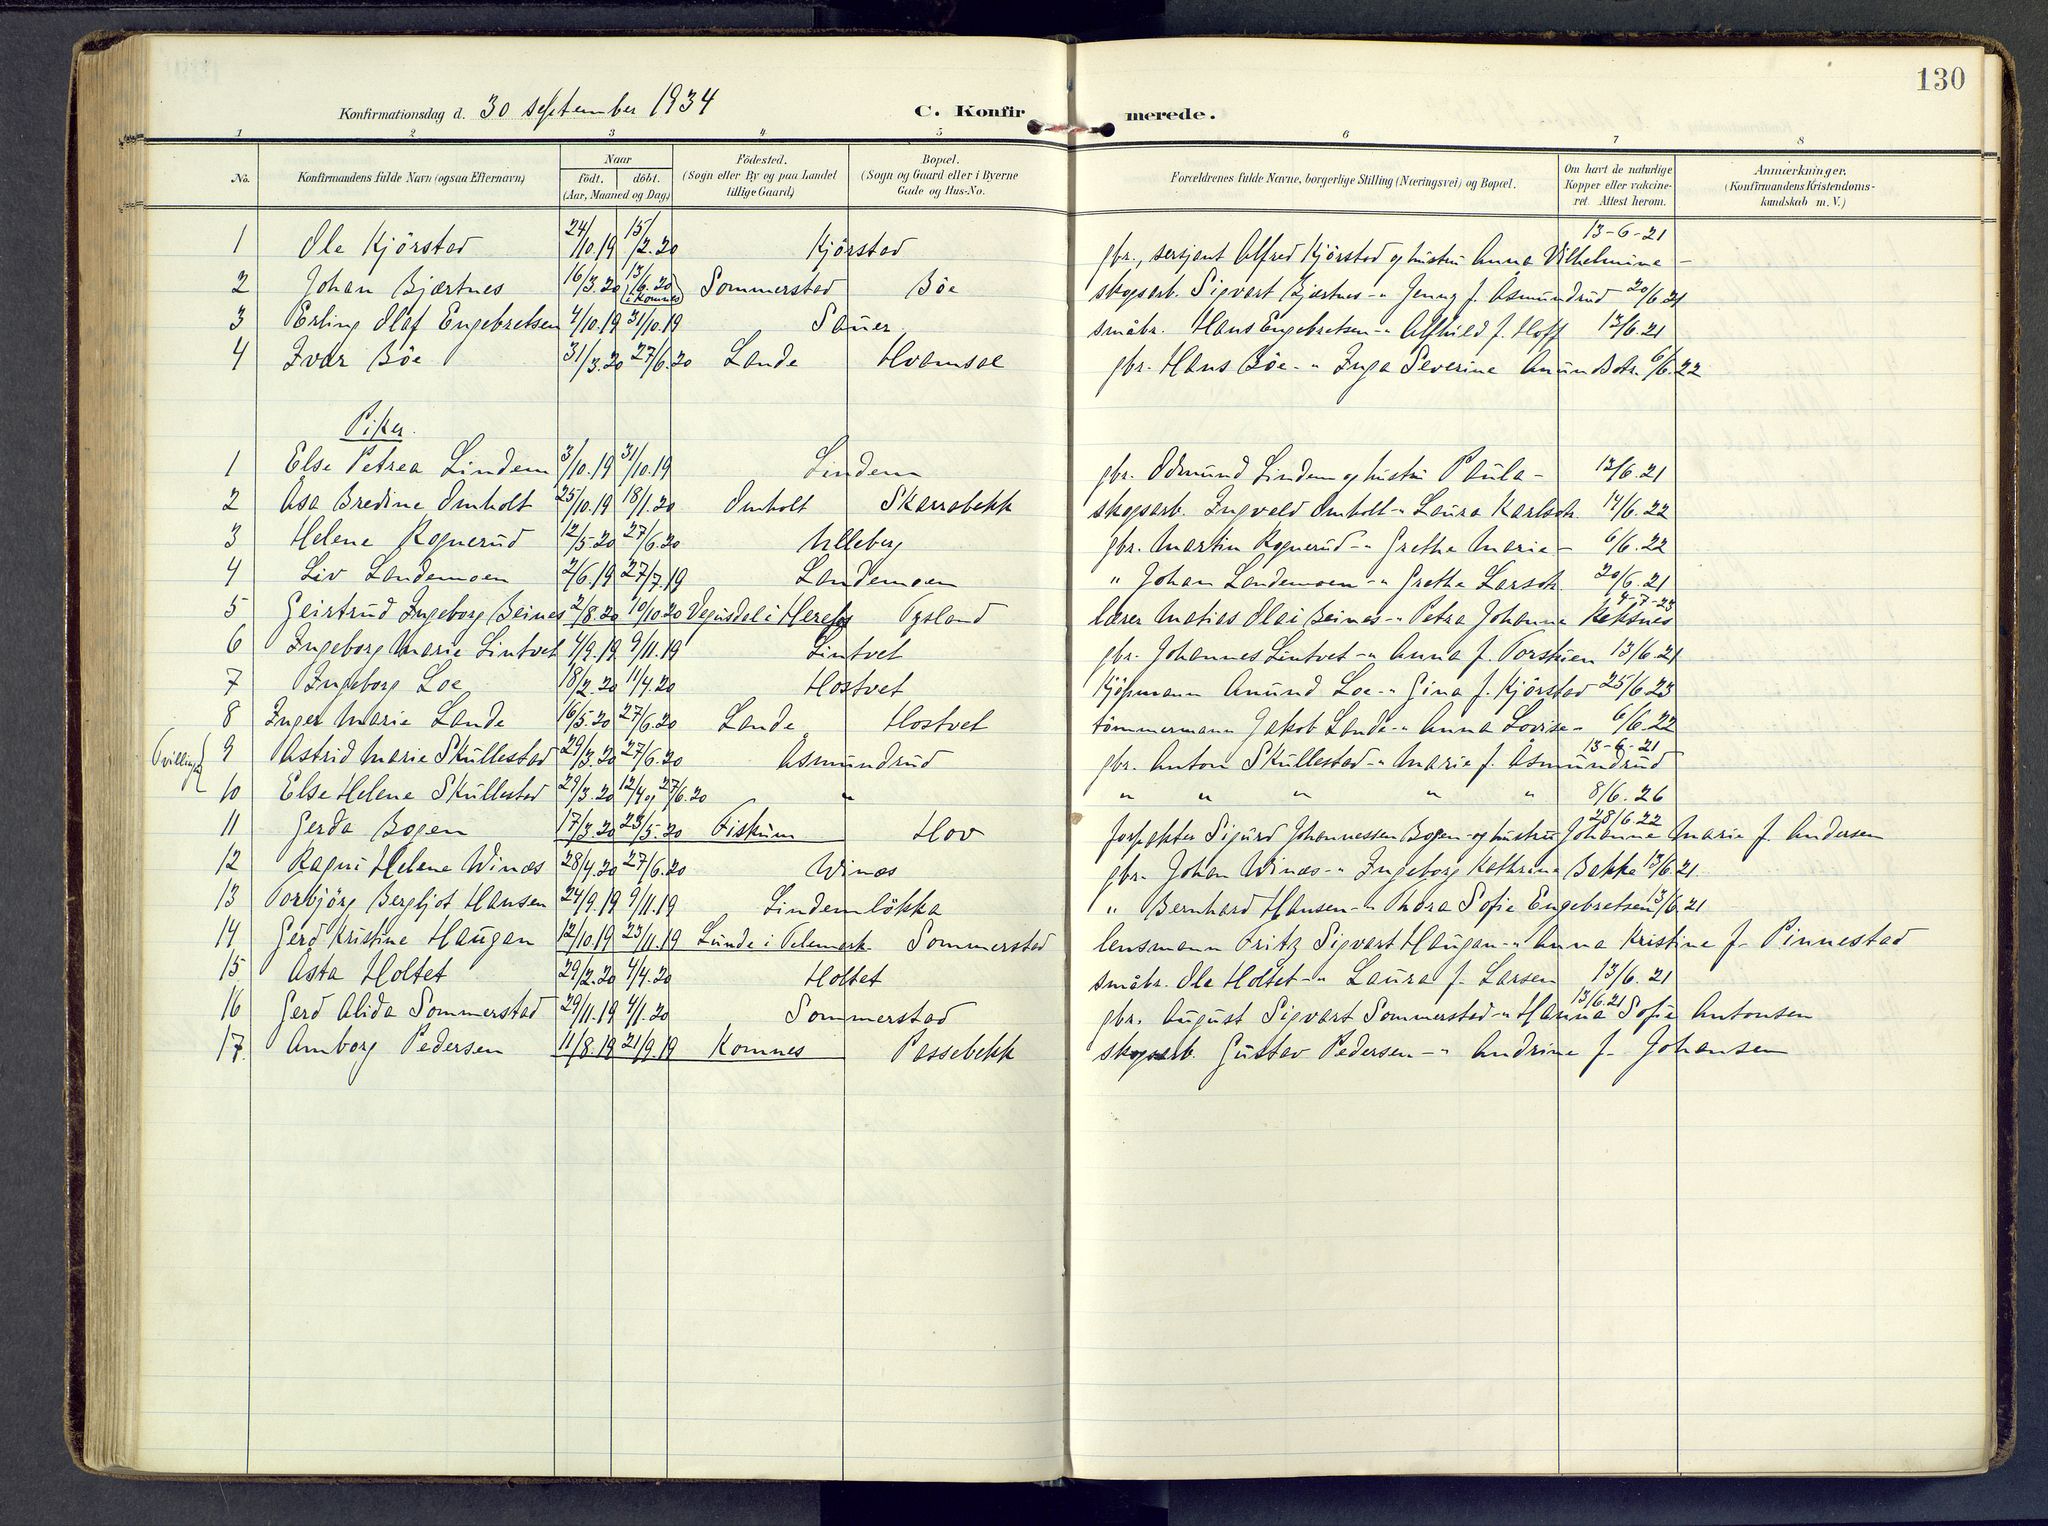 130
Konfirmationsdag d. 30 september 1934 C. Konfirmerede.
1 2 3 4 5 6 7 8
No. Konfirmandens fulde Navn (ogsaa Efternavn) Naar födt. döbt. (Aar, Maaned og Dag) Födested. (Sogn eller By og paa Landet tillige Gaard) Bopæl. (Sogn og Gaard eller i Byerne Gade og Hus-No. Forældrenes fulde Navne, borgerlige Stilling (Næringsvei) og Bopæl. Om havt de naturlige Kopper eller vakcineret. Attest herom. Anmærkninger. (Konfirmandens Kristendomskundskab m. V.)
1 Ole Kjörstad 24/10.19 15/2.20 Kjörstad gbr., sersjant Alfred Kjörstad og hustru Anna Vilhelmine - 13-6-21
2 Johan Bjærtnes 16/3.20 13/6.20 i Komnes Sommerstad Böe skogsarb. Sigvart Bjærtnes -"- Jenny f. Åsmundrud 20/6.21
3 Erling Olaf Engebretsen 4/10.19 31/10.19 Sauer småbr. Hans Engebretsen -"- Alfhild f. Hoff 13/6.21
4 Ivar Böe 31/3.20 27/6.20 Lande Hvamsal gbr. Hans Böe -"- Inga Severine Anundsdtr. 6/6.22
Piker.
1 Else Petrea Lindem 3/10.19 31/10.19 Lindem gbr. Odmund Lindem og hustru Paula - 13/6.21
2 Åsa Bredine Omholt 25/10.19 18/1.20 Omholt Skarrabekk skogsarb. Ingvald Omholt -"- Laura Karlsdtr. 14/6.22
3 Helene Rognerud 12/5.20 27/6.20 Ulleberg gbr. Martin Rognerud -"- Grethe Marie - 6/6.22
4 Liv Landemoen 2/6.19 27/7.19 Landemoen " Johan Landemoen -"- Grethe Larsdtr. 20/6.21
5 Geirtrud Ingeborg Beines 2/8.20 10/10.20 Vegusdal i Herefos Tysland lærer Matias Olai Beines -"- Petra Johanne Reksnes 4-7-23
6 Ingeborg Marie Lintvet 4/9.19 9/11.19 Lintvet gbr. Johannes Lintvet -"- Anna f. Torstien 13/6.21
7 Ingeborg Loe 18/2.20 11/4.20 Hostvet kjöpmann Anund Loe -"- Gina f. Kjörstad 25/6.23
8 Inger Marie Lande 16/5.20 27/6.20 Lande Hostvet tömmermann Jakob Lande -"- Anna Lovise - 6/6.22
Tvillinger 9 Astrid Marie Skullestad 29/3.20 27/6.20 Åsmundrud gbr. Anton Skullestad -"- Marie f. Åsmundrud 13-6-21
10 Else Helene Skullestad 29/3.20 12/4 og 27/6.20 " " " " " " 8/6.26
11 Gerda Bogen 17/3.20 23/5.20 Fiskum Hov forpakter Sigurd Johannessen Bogen - og hustru Johanne Marie f. Andersen 28/6.22
12 Ragni Helene Winæs 28/4.20 27/6.20 Winæs gbr. Johan Winæs -"- Ingeborg Kathrine Bakke 13/6.21
13 Torbjörg Bergljot Hansen 24/9.19 9/11.19 Lindemlökka " Bernhard Hansen -"- Thora Sofie Engebretsen 13/6.21
14 Gerd Kristine Haugan 12/10.19 23/11.19 Lunde i Telemark Sommerstad lensmann Fritz Sigvart Haugan -"- Anna Kristine f. Pinnestad
15 Åsta Holtet 29/2.20 4/4.20 Holtet småbr. Ole Holtet -"- Laura f. Larsen 13/6.21
16 Gerd Alida Sommerstad 29/11.19 4/1.20 Sommerstad gbr. August Sigvart Sommerstad -"- Hanna Sofie Antonsen 13/6.21
17. Arnborg Pedersen 11/8.19 21/9.19 Komnes Passebekk skogsarb. Gustav Pedersen -"- Andrine f. Johansen